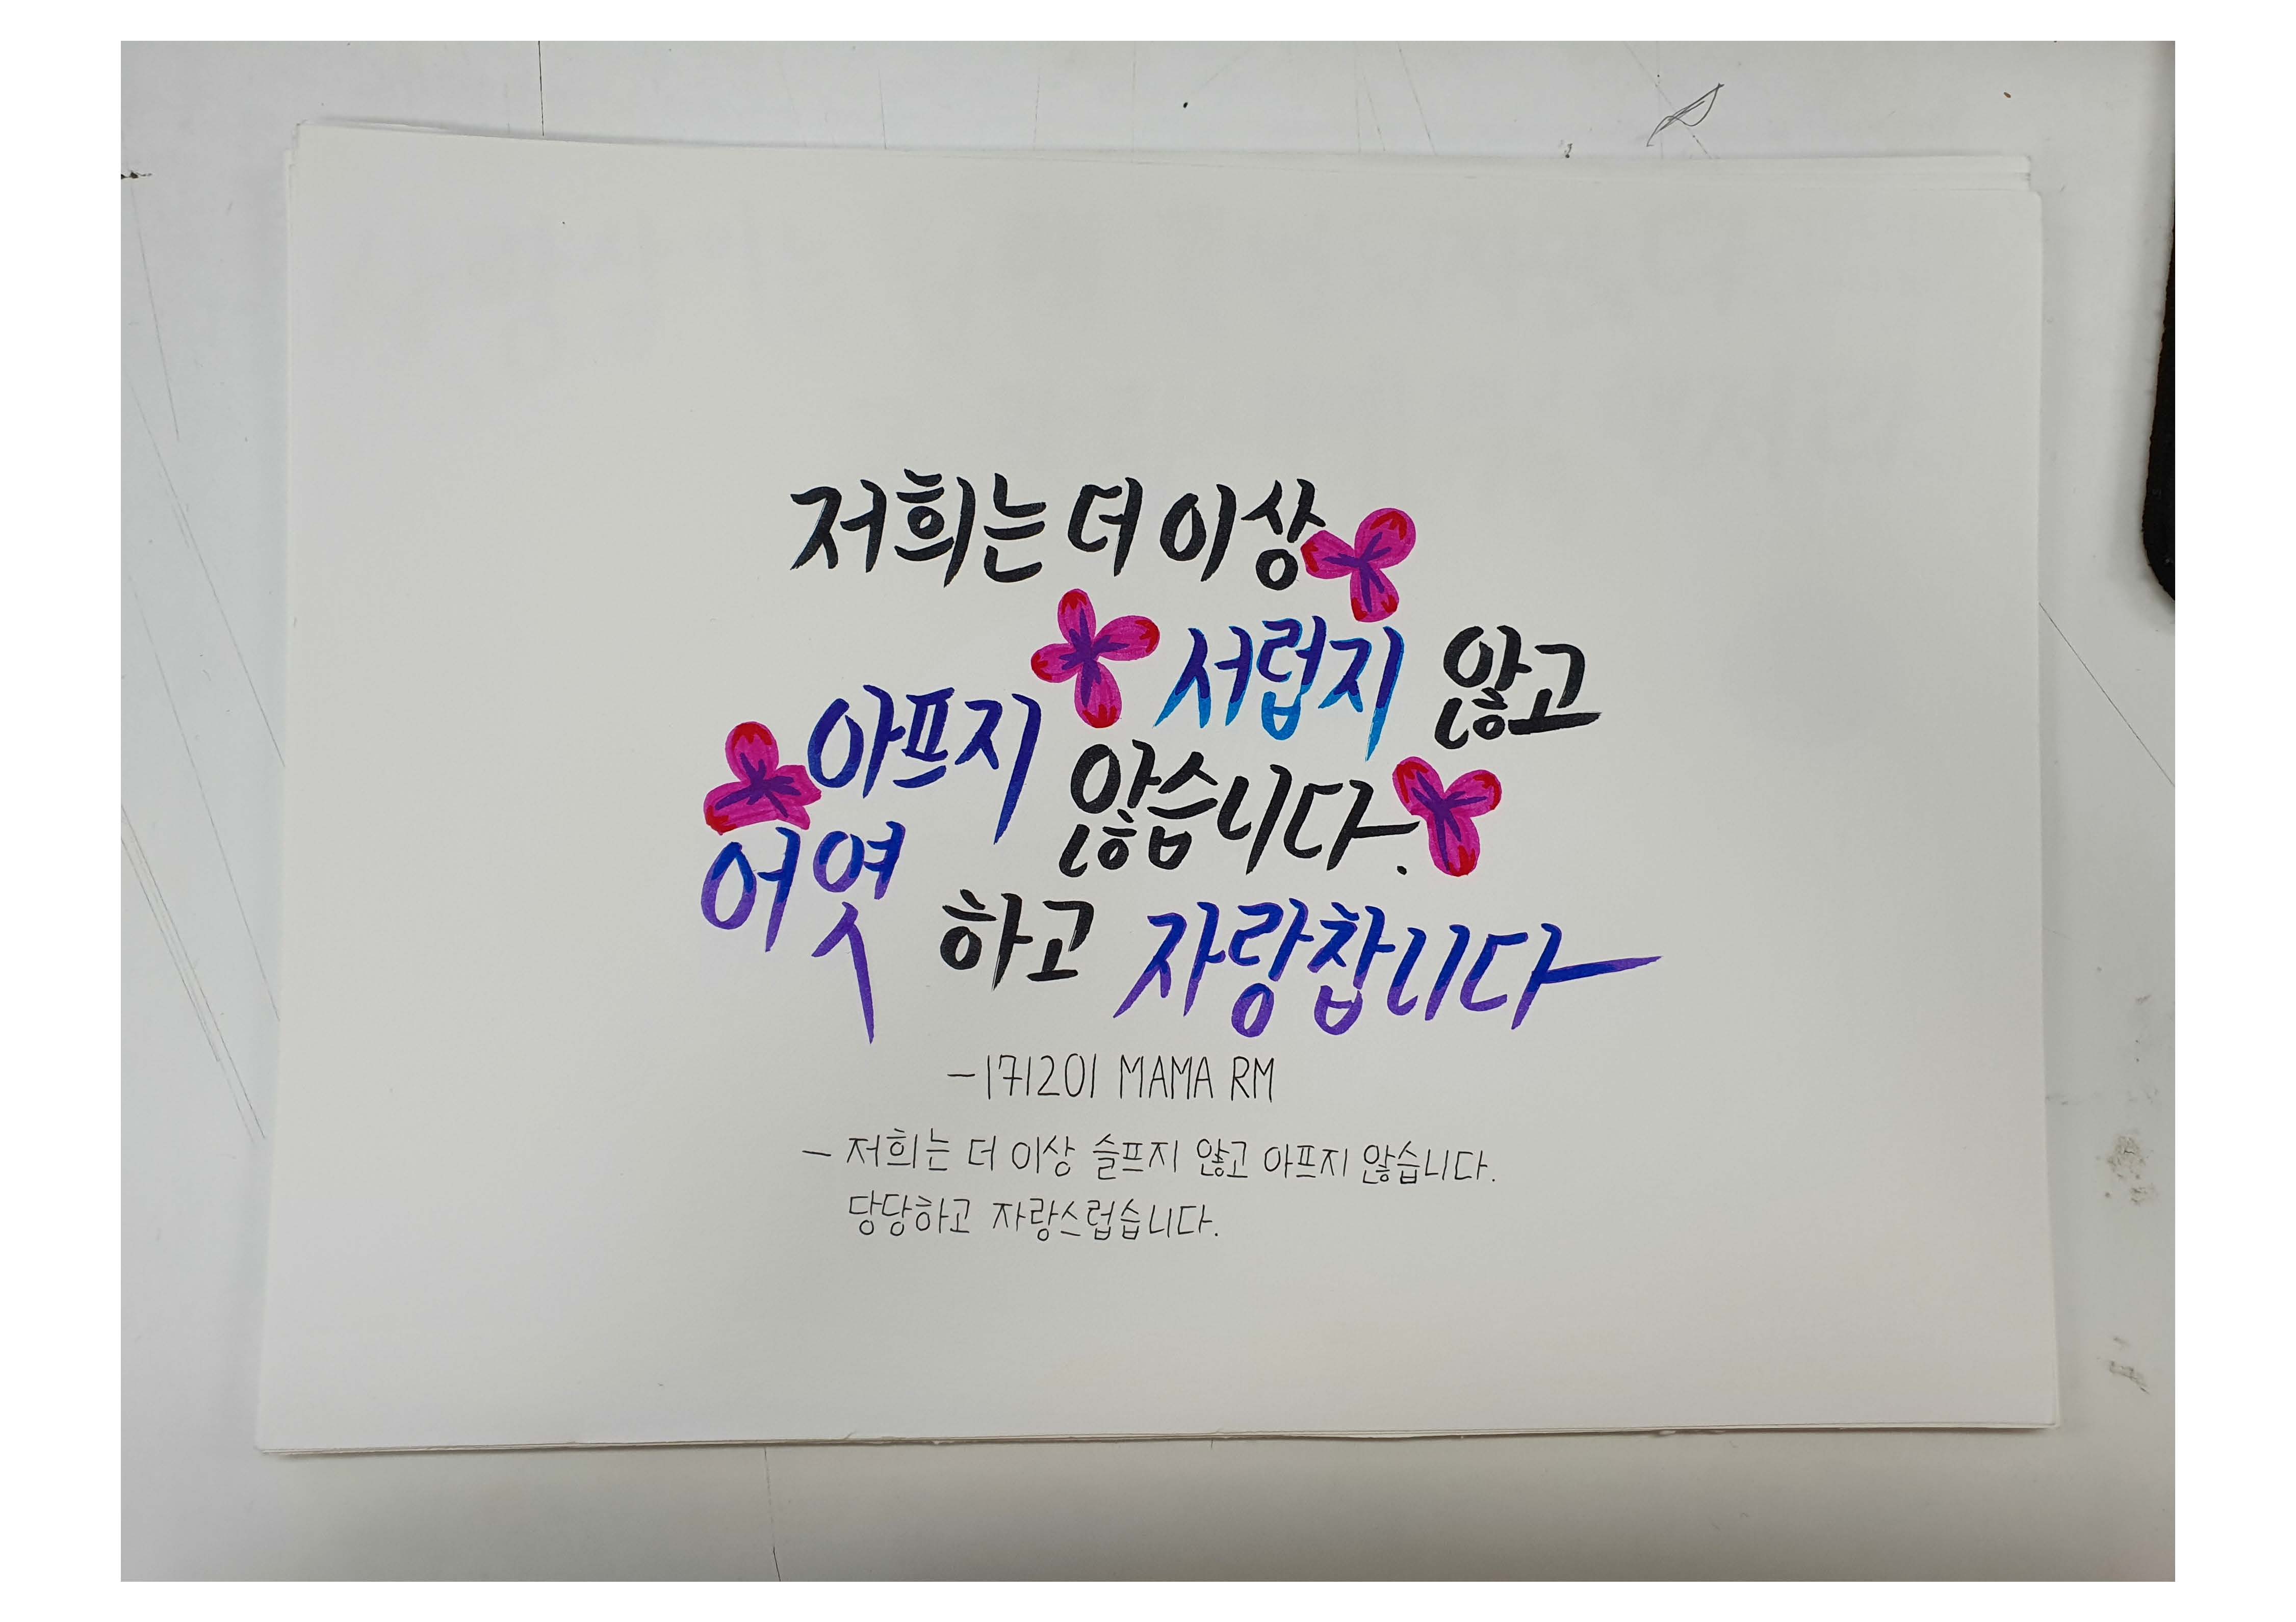 저희는 더 이상
서럽지 않고
아프지 않습니다.
어엿하고 자랑찹니다
-171201 MAMA RM
- 저희는 더 이상 슬프지 않고 아프지 않습니다.
당당하고 자랑스럽습니다.